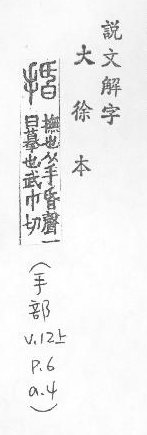 説文解字
大徐本
捪
撫也从手昏聲一
曰摹也武巾切
(手部
v.12上
p.6
a.4)